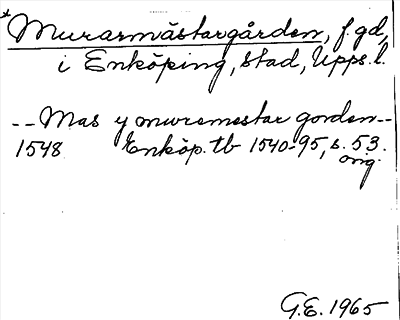 * Murarmästargården, f.gd,
i Enköping, stad, Upps.l.
-- Mas y muremestar gorden --
1548 Enköp. tb 1540-95, s. 53.
orig.
G.E. 1965